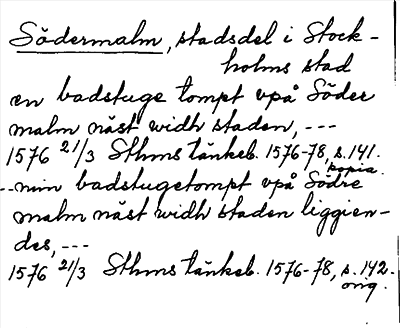 Södermalm, stadsdel i Stock-
holms stad
en badstuge tompt vpå Söder
malm näst widh staden, ---
1576 21/3 Sthms tänkeb. 1576-78, s. 141.
kopia.
--min badstugetompt vpå Södre
malm näst widh staden liggien-
des, ---
1576 21/3 Sthms tänkeb. 1576-78, s. 142.
orig.